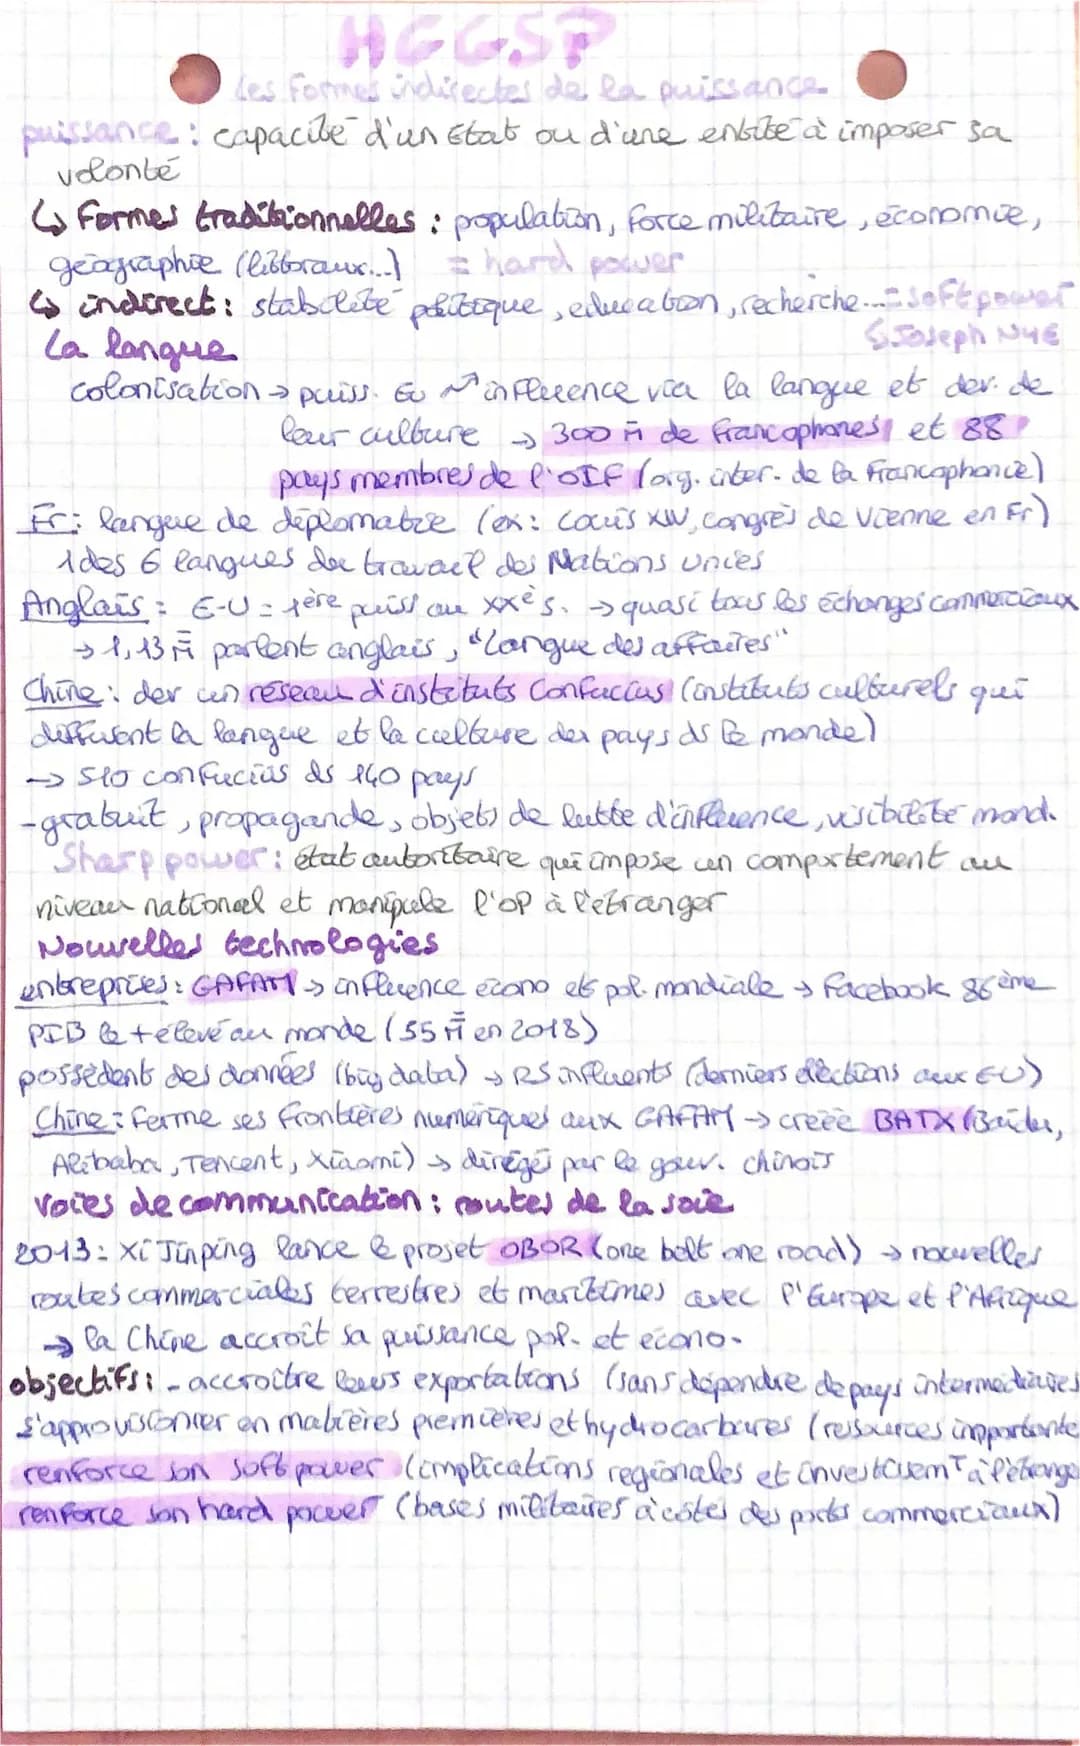 HGGSP
Les formes indirectes de la puissance
puissance : capacité d'un État ou d'une entité à imposer sa
volonté
↳ Formes traditionnelles : population, force militaire, économie,
géographie (littoraux...) = hard power
↳ indirect : stabilité politique, education, recherche... = soft power
↳ Joseph NYE
La langue
colonisation → puiss. Eu ↗ influence via la langue et dev. de
leur culture → 300 M de francophones et 88
pays membres de l'OIF (org. inter. de la Francophonie)
Fr : langue de diplomatie (ex : Louis XIV, congrès de Vienne en Fr)
1 des 6 langues de travail des Nations unies
Anglais : E-U = 1ère puiss au XXè s. → quasi tous les échanges commerciaux
→ 1,13 M̄ parlent anglais, "Langue des affaires"
Chine : dev un réseau d'instituts Confucius (instituts culturels qui
diffusent la langue et la culture des pays ds le monde)
→ 510 confucius ds 140 pays
- gratuit, propagande, objets de lutte d'influence, visibilité mond.
Sharp power : état autoritaire qui impose un comportement au
niveau national et manipule l'OP à l'étranger
Nouvelles technologies
entreprises : GAFAM → influence écono et pol. mondiale → Facebook 86ème
PIB le + élevé au monde (55 M̄ en 2018)
possèdent des données (big data) → RS influents (derniers élections aux EU)
Chine : Ferme ses frontières numériques aux GAFAM → créée BATX (Baidu,
Alibaba, Tencent, Xiaomi) → dirigés par le gouv. chinois
Voies de communication : routes de la soie
2013 : Xi Jinping lance le projet OBOR (one belt one road) → nouvelles
routes commerciales terrestres et maritimes avec l'Europe et l'Afrique
→ la Chine accroît sa puissance pol. et écono.
objectifs : - accroître leurs exportations (sans dépendre de pays intermédiaires
s'approvisionner en matières premières et hydrocarbures (ressources importante
renforce son soft power (implications régionales et investissemT à l'étrange
renforce son hard power (bases militaires à côtés des ports commerciaux)